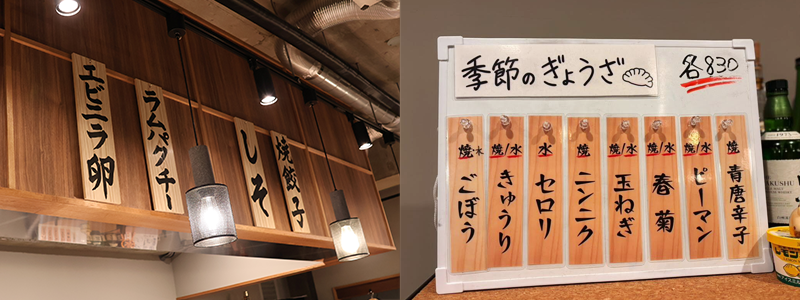 エビニラ卵
ラムパクチー
しそ
焼餃子
季節のぎょうざ
各830
焼・水 ごぼう
焼/水 きゅうり
水 セロリ
焼 ニンニク
焼/水 玉ねぎ
焼/水 春菊
焼/水 ピーマン
焼 青唐辛子